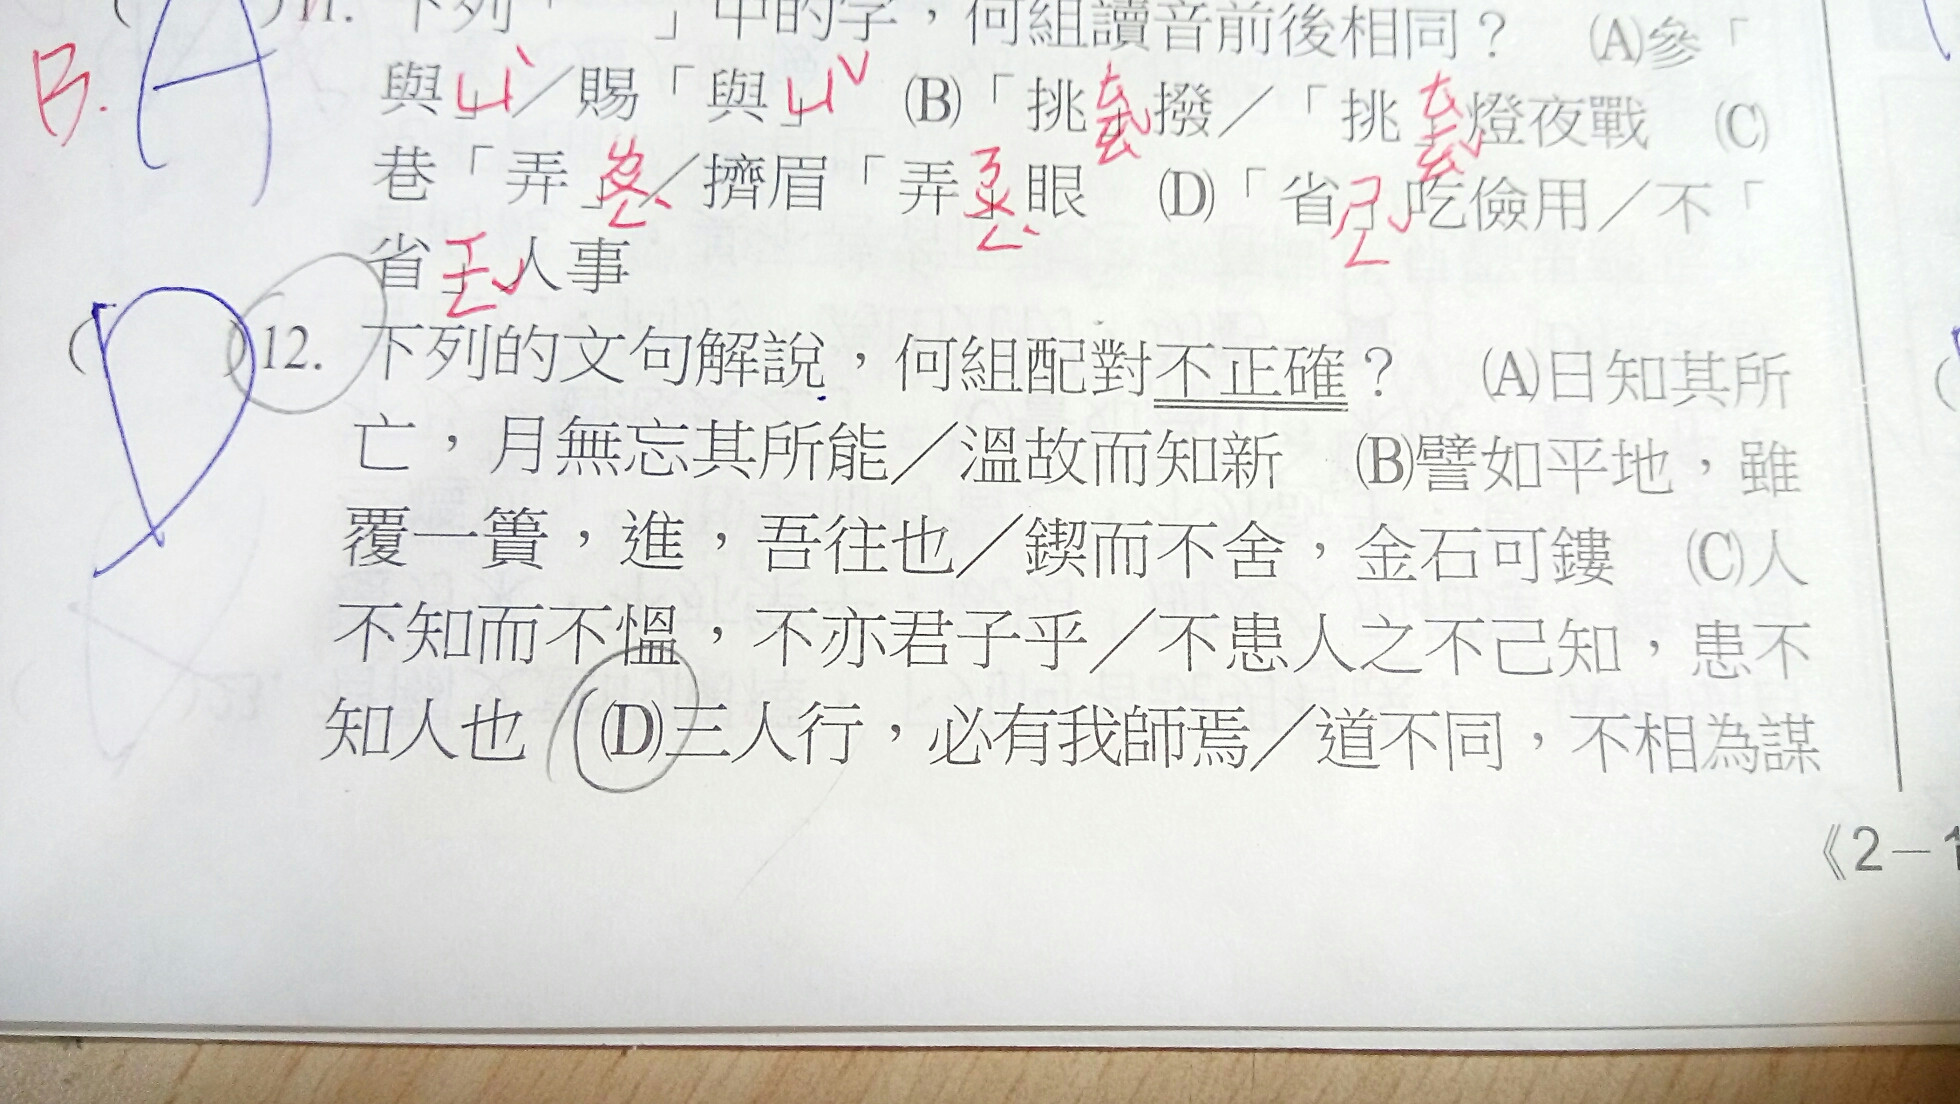 11. 下列「　」中的字，何組讀音前後相同？ (A)參「
B. A 與ㄩˋ」／賜「與ㄩˇ」 (B)「挑」撥／「挑」燈夜戰 (C)
巷「弄」／擠眉「弄」眼 (D)「省」吃儉用／不「
省」人事
(D)12. 下列的文句解說，何組配對不正確？ (A)日知其所
亡，月無忘其所能／溫故而知新 (B)譬如平地，雖
覆一簣，進，吾往也／鍥而不舍，金石可鏤 (C)人
不知而不慍，不亦君子乎／不患人之不己知，患不
知人也 (D)三人行，必有我師焉／道不同，不相為謀
《2－1